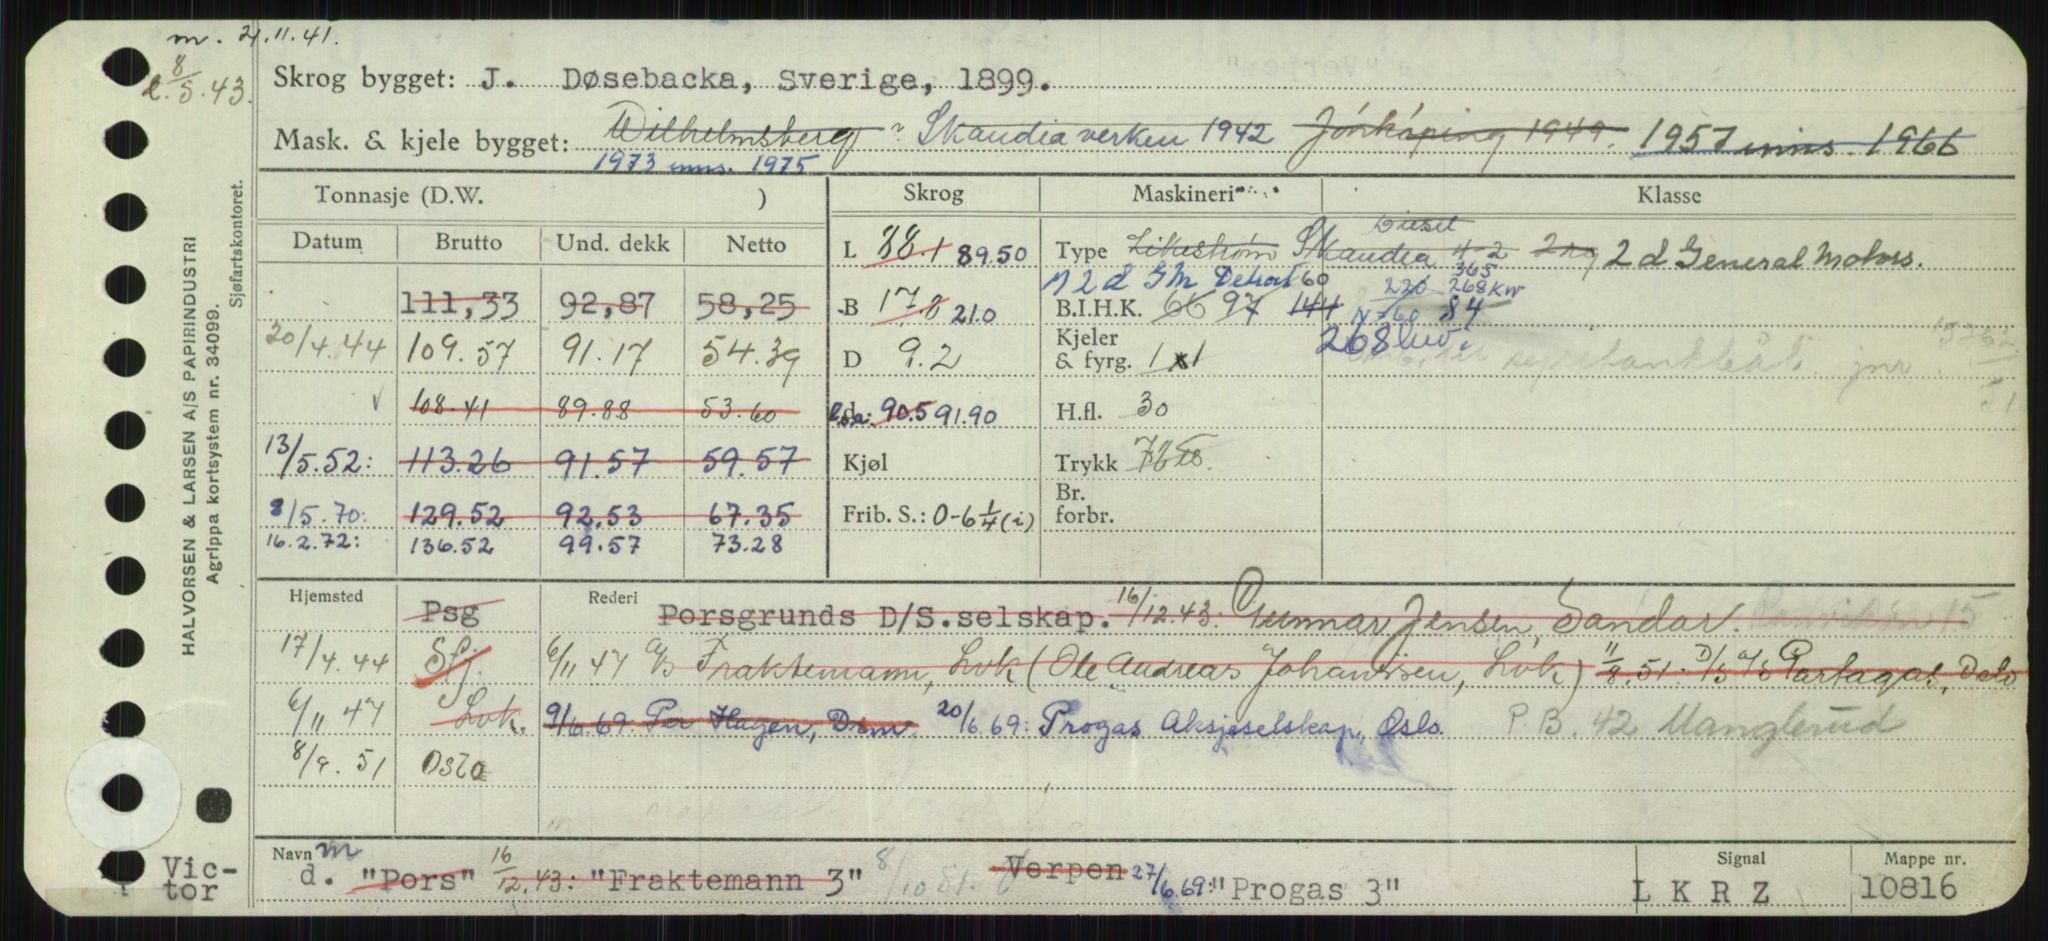 m. 21.11.41.
8/5.43.
Skrog bygget: J. Døsebacka, Sverige, 1899.
Mask. & kjele bygget: Wilhelmsberg? Skandiaverken 1942 Jönköping 1949. 1957 inns. 1966
1973 inns. 1975
HALVORSEN & LARSEN A/S PAPIRINDUSTRI
Agrippa kortsystem nr. 34099.
Sjøfartskontoret.
Tonnasje (D.W. ) Skrog Maskineri Klasse
Datum Brutto Und. dekk Netto
L 88.1 89.50 Type Diesel Skandia 4-2 2 d General Motors.
N 2 d GM Detroit 60 365
111,33 92,87 58,25 B 17.8 21.0 B.I.H.K. 66 97 144 220 268 kW
N 760 84
268 kw.
20/4.44 109.57 91.17 54.39 D 9.2 Kjeler & fyrg. 1x1
108.41 89.88 53.60 l.o.a: 90.5 91.90 H.fl. 30
13/5.52: 113.26 91.57 59.57 Kjøl Trykk
8/5.70: 129.52 92.53 67.35 Frib. S.: 0-6 1/4 (i) Br. forbr.
16.2.72: 136.52 99.57 73.28
Hjemsted Psg Rederi Porsgrunds D/S.selskap. 16/12.43: Gunnar Jensen, Sandar.
17/4.44 Sfj. 6/11 47 A/S Fraktemann, Lvk (Ole Andreas Johannsen, Lvk) 11/8.51. D/S A/S Partagas, Oslo
6/11 47 Lvk. 9/6.69. Per Hagen, Drm. 20/6.69: Progas Aksjeselskap, Oslo. P.B. 42 Manglerud
8/9.51 Oslo
Navn m
d. "Pors" 16/12.43: "Fraktemann 3" 8/10 51. Verpen 27/6.69: "Progas 3"
Vic-
tor
Signal
L K R Z
Mappe nr.
10816